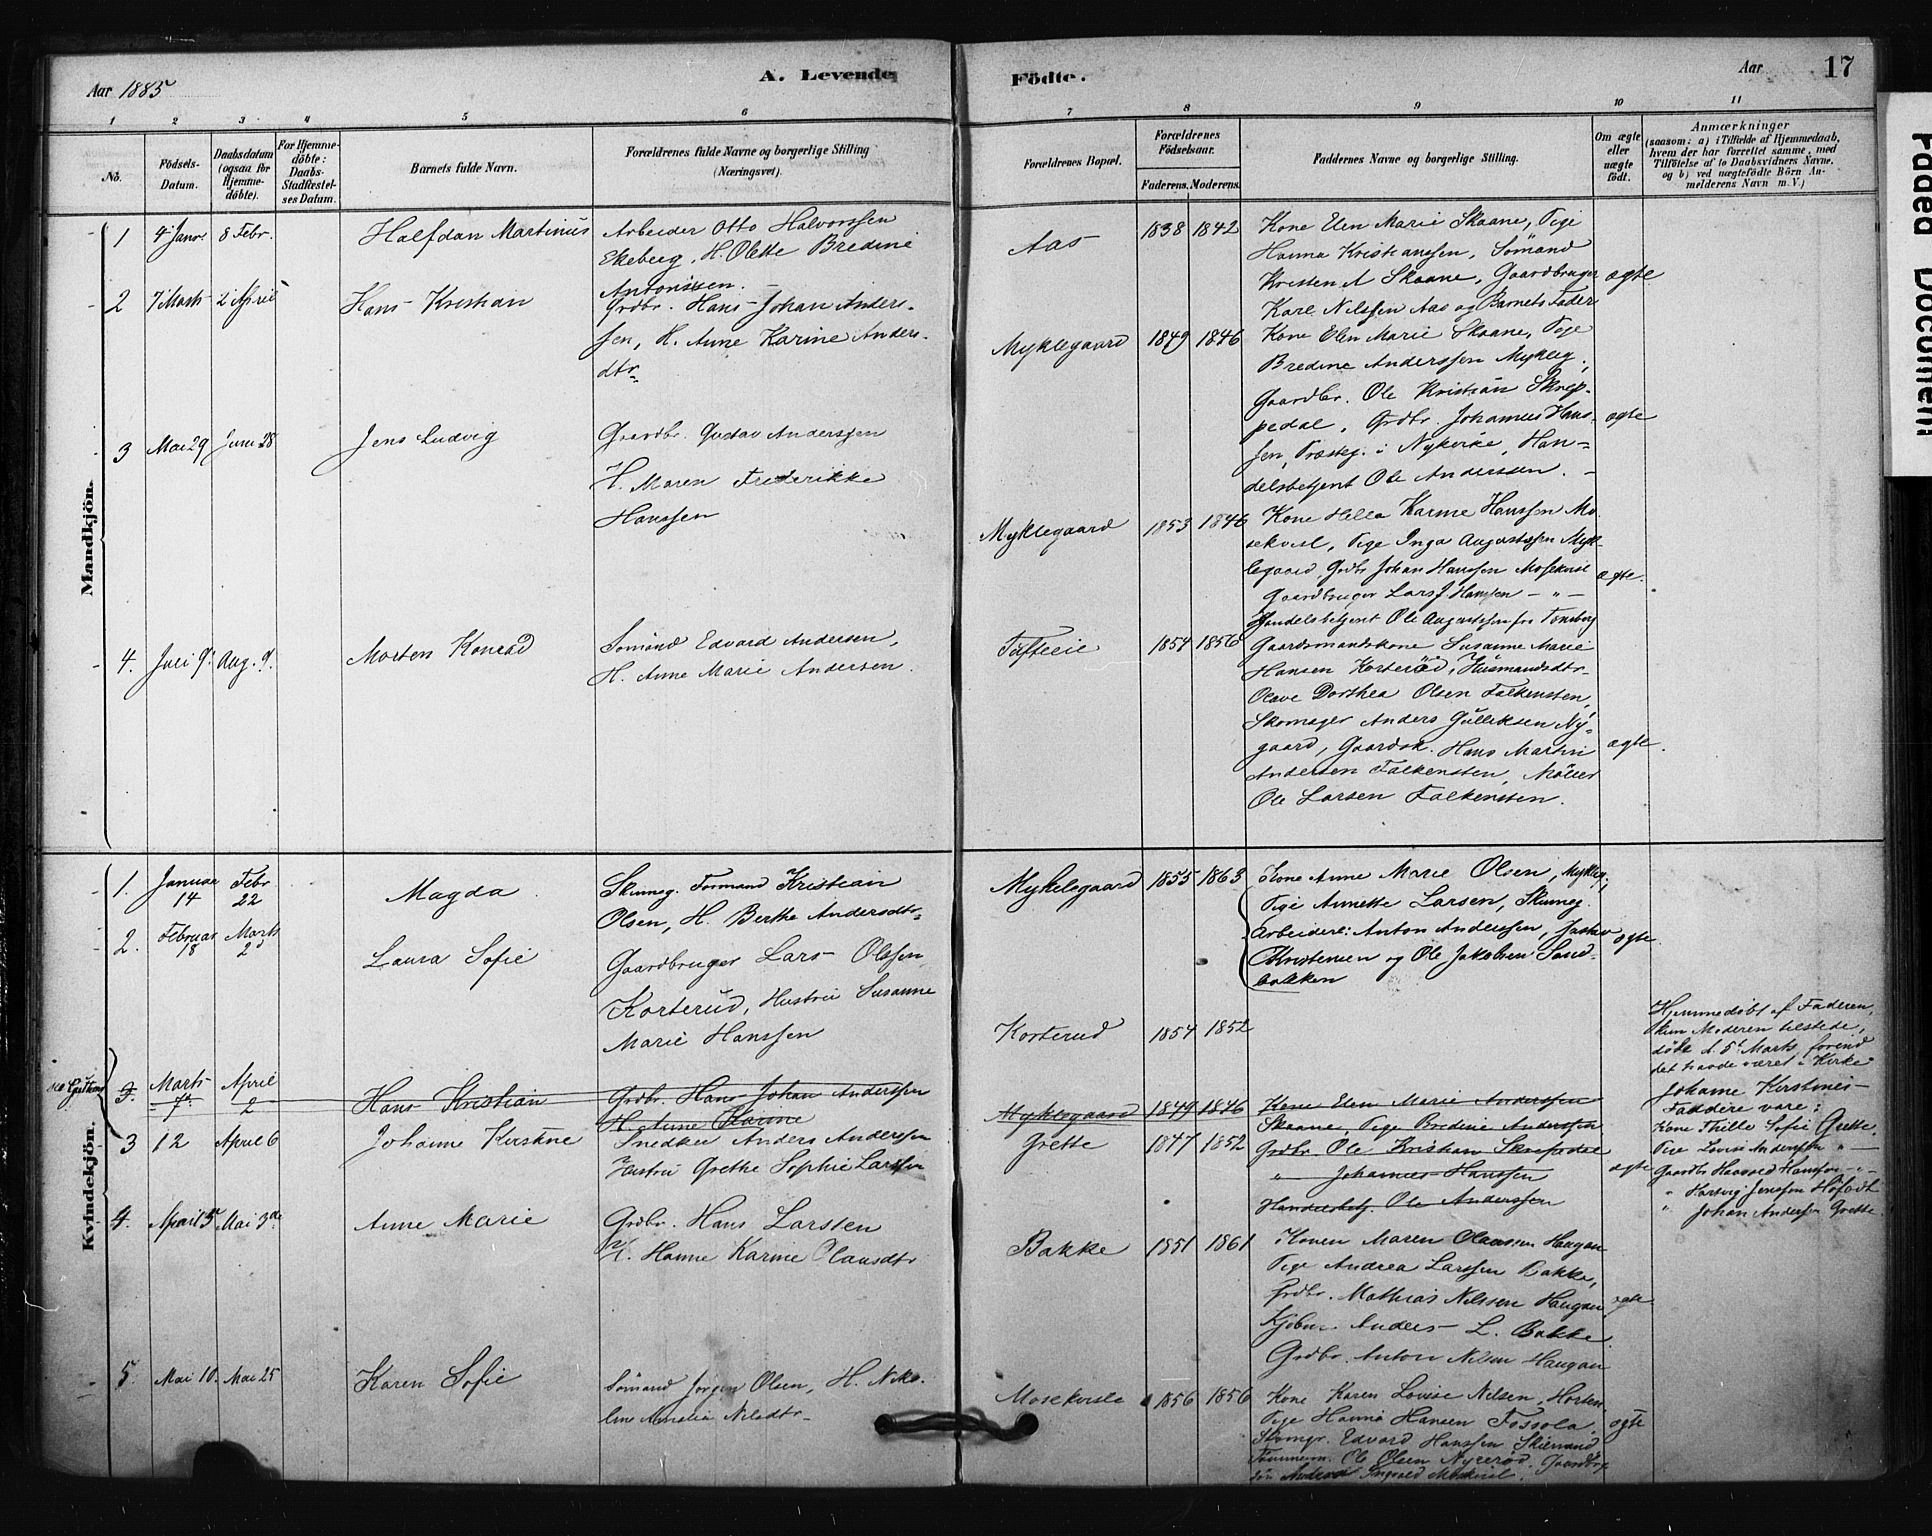 Aar 1885
A. Levende
Födte.
Aar
17
1 2 3 4 5 6 7 8 9 10 11
No.
Födsels-
Datum.
Daabsdatum
(ogsaa for
Hjemme-
döbte).
For Hjemme-
döbte:
Daabs-
Stadfæstel-
ses Datum.
Barnets fulde Navn.
Forældrenes fulde Navne og borgerlige Stilling
(Næringsvei).
Forældrenes Bopæl.
Forældrenes
Födselsaar.
Faderens. Moderens.
Faddernes Navne og borgerlige Stilling.
Om ægte
eller
uægte
födt.
Anmærkninger
(saasom: a) i Tilfælde af Hjemmedaab,
hvem der har forrettet samme, med
Tilföielse af to Daabsvidners Navne.
og b) ved uægtefödte Börn An-
melderens Navn m. V.)
Mandkjön.
1 4 Janr. 8 Febr. Halfdan Martinius
Arbeider Otto Halvorssen
Ekeberg, H. Olette Bredine
Antonissen.
Aas 1838 1842
Kone Elen Marie Skaane, Pige
Hanna Kristianssen, Sömand
Kristen A Skaane, Gaardbruger
Karl Nilssen Aas og Barnets Fader
ægte
2 7 Marts 2 April Hans Kristian
Grdbr. Hans Johan Anders-
sen, H. Anne Karine Anders-
dtr.
Myklegaard 1849 1846
Kone Elen Marie Skaane, Pige
Bredine Anderssen Mykleg.,
Gaardbr. Ole Kristian Skrep-
pedal, Grdbr. Johannes Hans-
sen, Præsteg. i Nykirke, Han-
delsbetjent Ole Anderssen.
ægte
3 Mai 29 Juni 28 Jens Ludvig
Gaardbr. Gustav Anderssen
H. Maren Frederikke
Hanssen
Myklegaard 1853 1846
Kone Hella Karine Hanssen Mo-
sekvisl, Pige Inga Augustssen Myk-
legaard Grdbr Johan Hanssen Mosekvisl
Gaardbruger Lars J Hanssen - " -
Handelsbetjent Ole Augustssen fra Tønsberg
ægte.
4. Juli 9. Aug. 9. Morten Konrad
Sömand Edvard Andersen,
H. Anne Marie Andersen.
1854 1856
Gaardmandskone Susanne Marie
Hansen Korteröd, Husmandsdtr.
Olave Dorthea Olsen Falkensten,
Skomager Anders Gulliksen Ny-
gaard, Gaardsk. Hans Martin
Andersen Falkensten, Möller
Ole Larsen Falkensten.
ægte.
Kvindekjön.
1. Januar 14 Febr 22 Magda
Skinneg. Formand Kristian
Olsen, H. Berthe Andersdtr.
Myklegaard 1855 1863
Kone Anne Marie Olsen, Mykleg.,
Pige Annette Larsen, Skinneg.
Arbeidere: Anton Anderssen, Gustav
Christensen og Ole Jakobsen Sand-
bakken
ægte.
2. Februar 18 Marts 2 Laura Sofie
Gaardbruger Lars Olssen
Korterud, Hustru Susanne
Marie Hanssen
Korterud 1854 1852
Hjemmedöbt af Faderen,
kun Moderen tilstede,
döde d. 5t Marts forend
det havde været i Kirke
3. Marts 7de April 2 Hans Kristian
Grdbr. Hans Johan Anderssen
H. Anne Karine
Myklegaard 1849 1846
Kone Elen Marie Anderssen
Skaane, Pige Bredine Anderssen
Grdbr Ole Kristian Skrepedal
" Johannes Hanssen
Handelsbetj. Ole Anderssen
3 12 April 6 Johanne Kirstine
Snedker Anders Anderssen
Hustru Grethe Sophie Larssen
Grette 1847 1852
ægte
Johanne Kirstines
Faddere vare:
Kone Thille Sofie Grette.
Pige Lovise Anderssen " -
Gaardbr Haavald Hanssen - " -
" Hartvig Jenssen
" Johan Anderssen Grette.
4. April 5 Mai 3de Anne Marie
Grdbr. Hans Larssen
H. Hanne Karine Olausdtr
Bakke 1851 1861
Konen Maren Olaussen Haugan
Pige Andrea Larssen Bakke,
Grdbr. Mathias Nilssen Haugan,
Anders L. Bakke
Grdbr. Anton Nilsen Haugan
ægte
5. Mai 10. Mai 25 Karen Sofie
Sömand Jörgen Olsen, H. Niko-
line Amalia Nilsdtr.
Mosekvisle 1856 1856
Kone Karen Lovise Nilsen, Horten
Pige Hanna Hansen Fossola.
Edvard Hanssen
Ole Olsen Nyreröd.
ægte